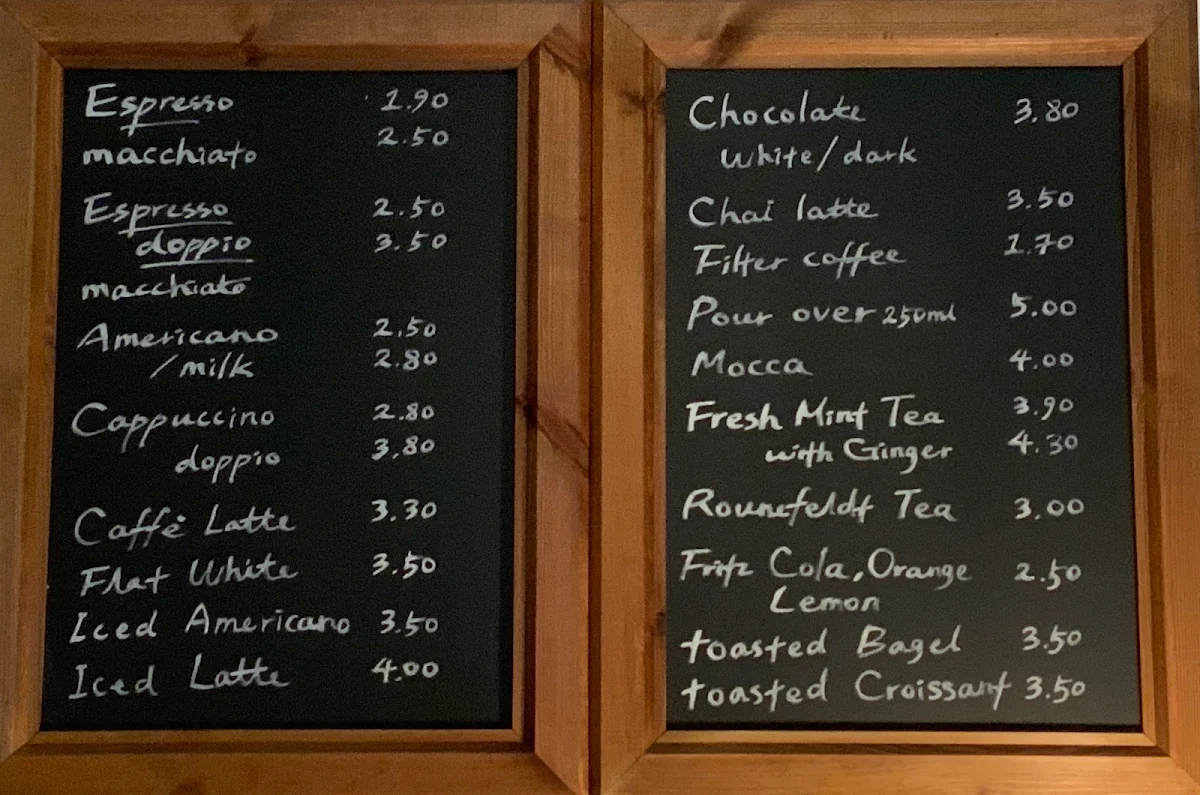 Espresso 1.90
macchiato 2.50
Espresso 2.50
doppio 3.50
macchiato
Americano 2.50
/milk 2.80
Cappuccino 2.80
doppio 3.80
Caffè Latte 3.30
Flat White 3.50
Iced Americano 3.50
Iced Latte 4.00
Chocolate 3.80
White/dark
Chai latte 3.50
Filter coffee 1.70
Pour over 250ml 5.00
Mocca 4.00
Fresh Mint Tea 3.90
with Ginger 4.30
Rounefeldt Tea 3.00
Fritz Cola, Orange 2.50
Lemon
toasted Bagel 3.50
toasted Croissant 3.50